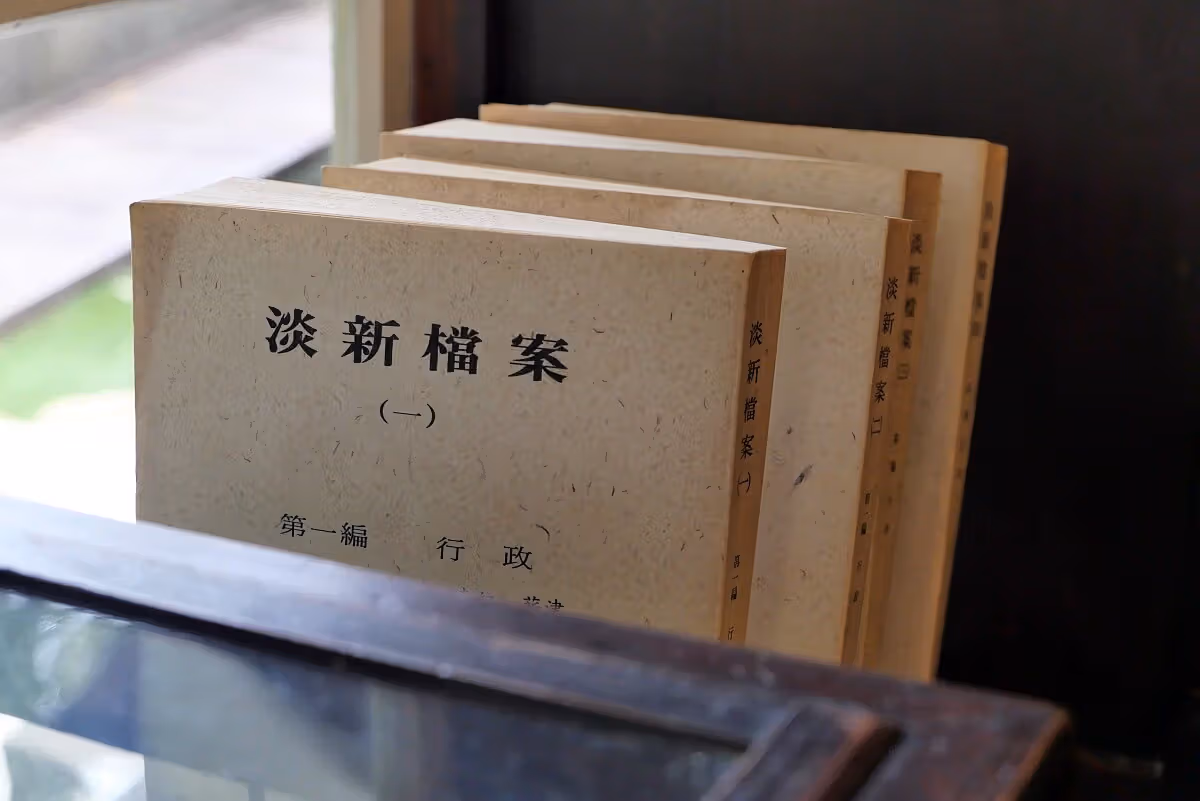 淡新檔案
(一)
第一編 行政
淡新檔案(一)
第一編 行
淡新檔案(二)
第一編
淡新檔案(三)